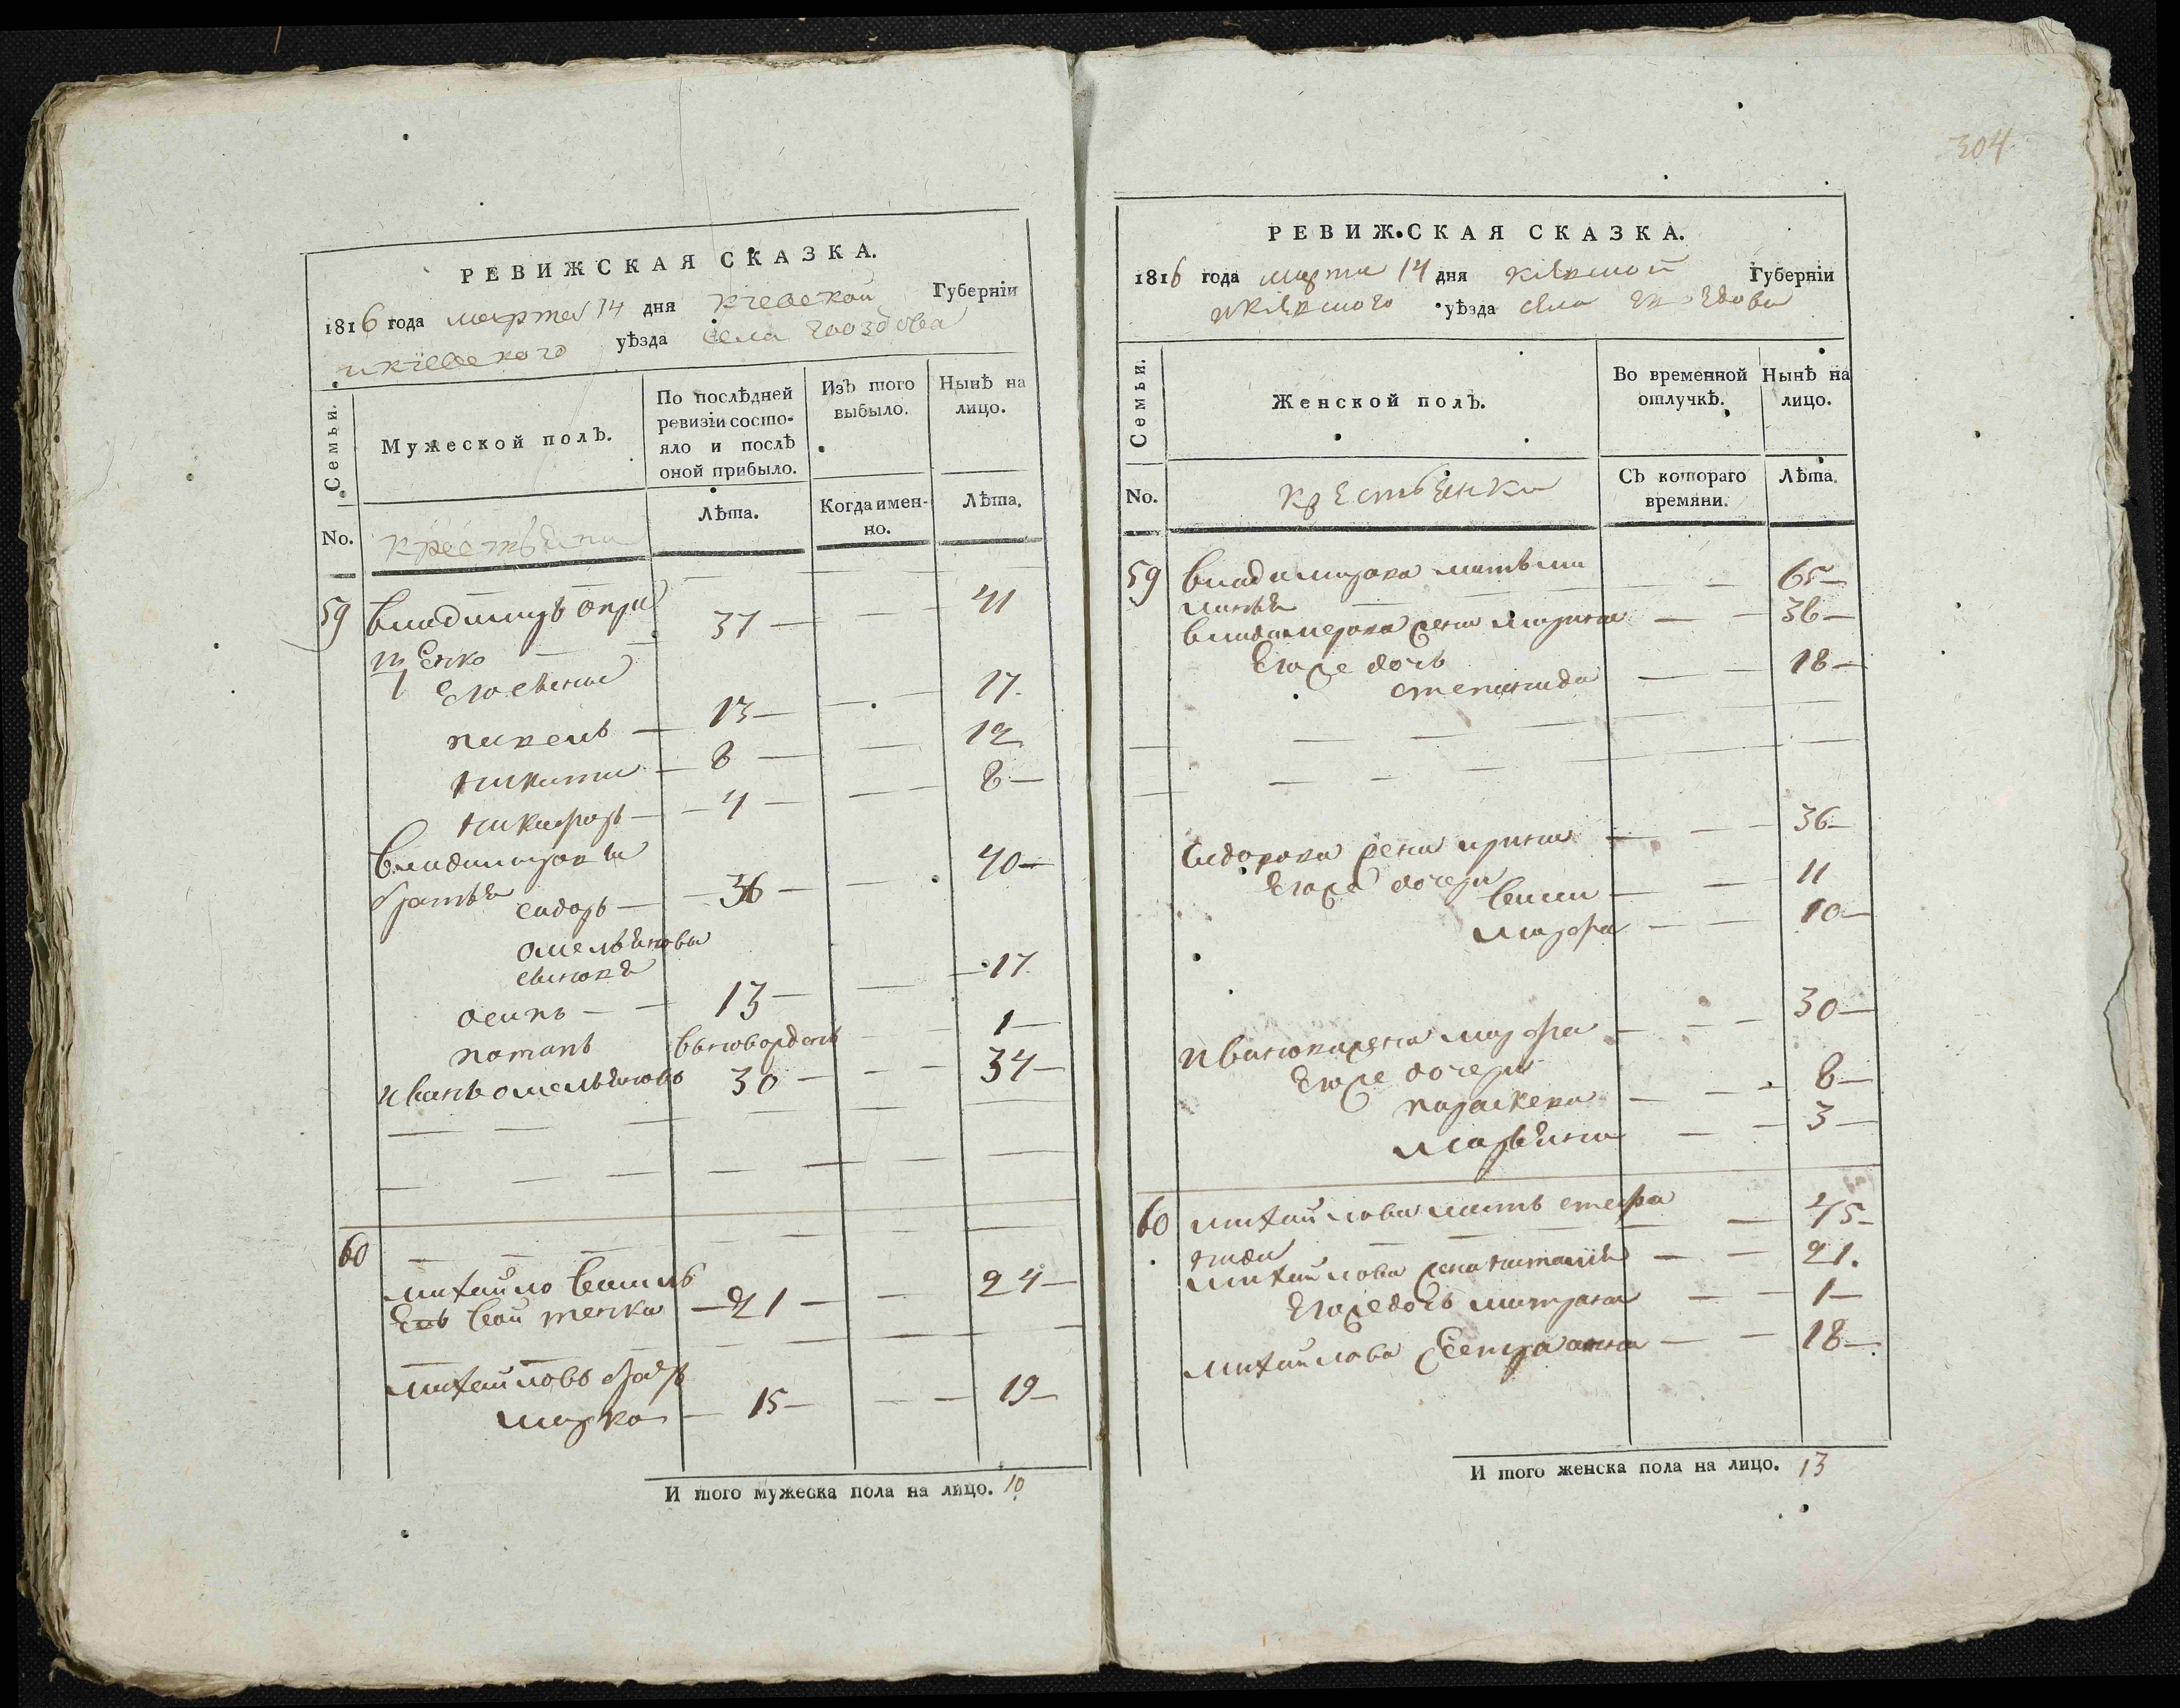 304
РЕВИЖСКАЯ СКАЗКА.
1816 года марта 14 дня киевской Губерніи
и киевского уѣзда села гвоздова
Семьи.
Мужеской полъ.
По послѣдней ревизіи состояло и послѣ оной прибыло.
Изъ того выбыло.
Нынѣ на лицо.
No.
крестьяни
Лѣта.
Когда именно.
Лѣта.
59 Владимиръ 37 — — 41
Его сыны
павелъ — 13 — — 17.
никита — 8 — — 12
никифоръ — 4 — — 8 —
Владимировы
братья сидоръ — 36 — — 40 —
омельянова
сынова
осипъ — 13 — — 17.
потапъ вновьрожденъ — 1 —
иванъ омельяновъ 30 — — 34 —
60
михайло василь
евъ — 21 — — 24 —
михайловъ братъ
марко — 15 — — 19 —
И того мужеска пола на лицо. 10
РЕВИЖСКАЯ СКАЗКА.
1816 года марта 14 дня киевской Губерніи
и киевского уѣзда села гвоздова
Семьи.
Женской полъ.
Во временной отлучкѣ.
Нынѣ на лицо.
No.
крестьянки
Съ котораго времяни.
Лѣта.
59 владимирова мать — — 65 —
владимерова жена марина — — 36 —
Егоже дочь
степанида — — 18 —
сидорова жена ирина — — 36 —
Егоже дочери
— — 11
марфа — — 10 —
иванова жена марфа — — 30 —
Егоже дочери
параскева — — 8 —
марьяна — — 3 —
60 михайлова мать стефа
нида — 45 —
михайлова жена наталія — — 21.
Егоже дочь матрона — — 1 —
михайлова сестра анна — — 18 —
И того женска пола на лицо. 13